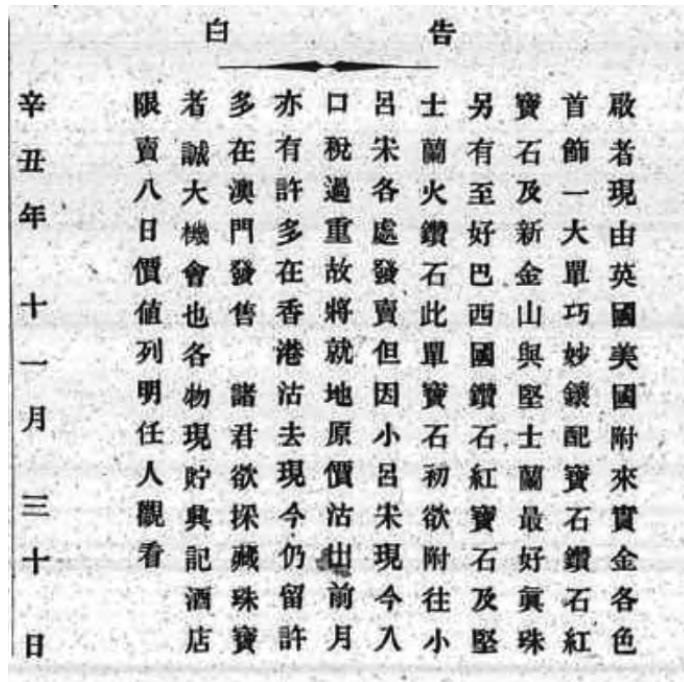 告白
啟者現由英國美國附來實金各色
首飾一大單巧妙鑲配寶石鑽石紅
寶石及新金山與堅士蘭最好眞珠
另有至好巴西國鑽石紅寶石及堅
士蘭火鑽石此單寶石初欲附往小
呂宋各處發賣但因小呂宋現今入
口稅過重故將就地原價沽出前月
亦有許多在香港沽去現今仍留許
多在澳門發售 諸君欲採藏珠寶
者誠大機會也各物現貯興記酒店
限賣八日價值列明任人觀看
辛丑年十一月三十日